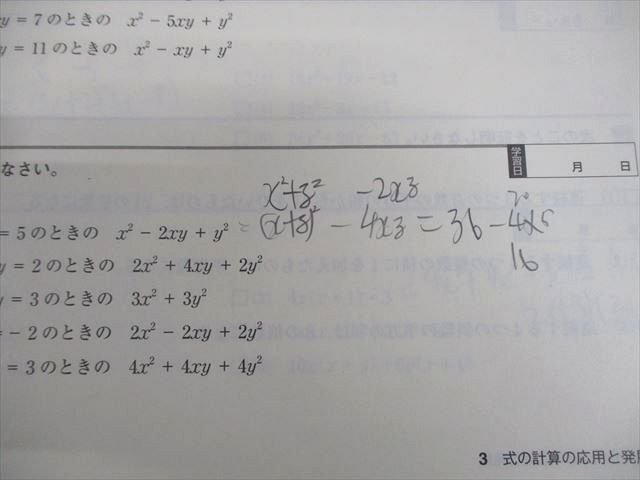 xy = 7 のときの x² − 5xy + y²
y = 11 のときの x² − xy + y²
なさい。
学習日 月 日
x²+y² −2xy
= 5 のときの x² − 2xy + y² = (x+y)² − 4xy = 36 − 4×5
20
16
y = 2 のときの 2x² + 4xy + 2y²
y = 3 のときの 3x² + 3y²
= −2 のときの 2x² − 2xy + 2y²
= 3 のときの 4x² + 4xy + 4y²
3 式の計算の応用と発